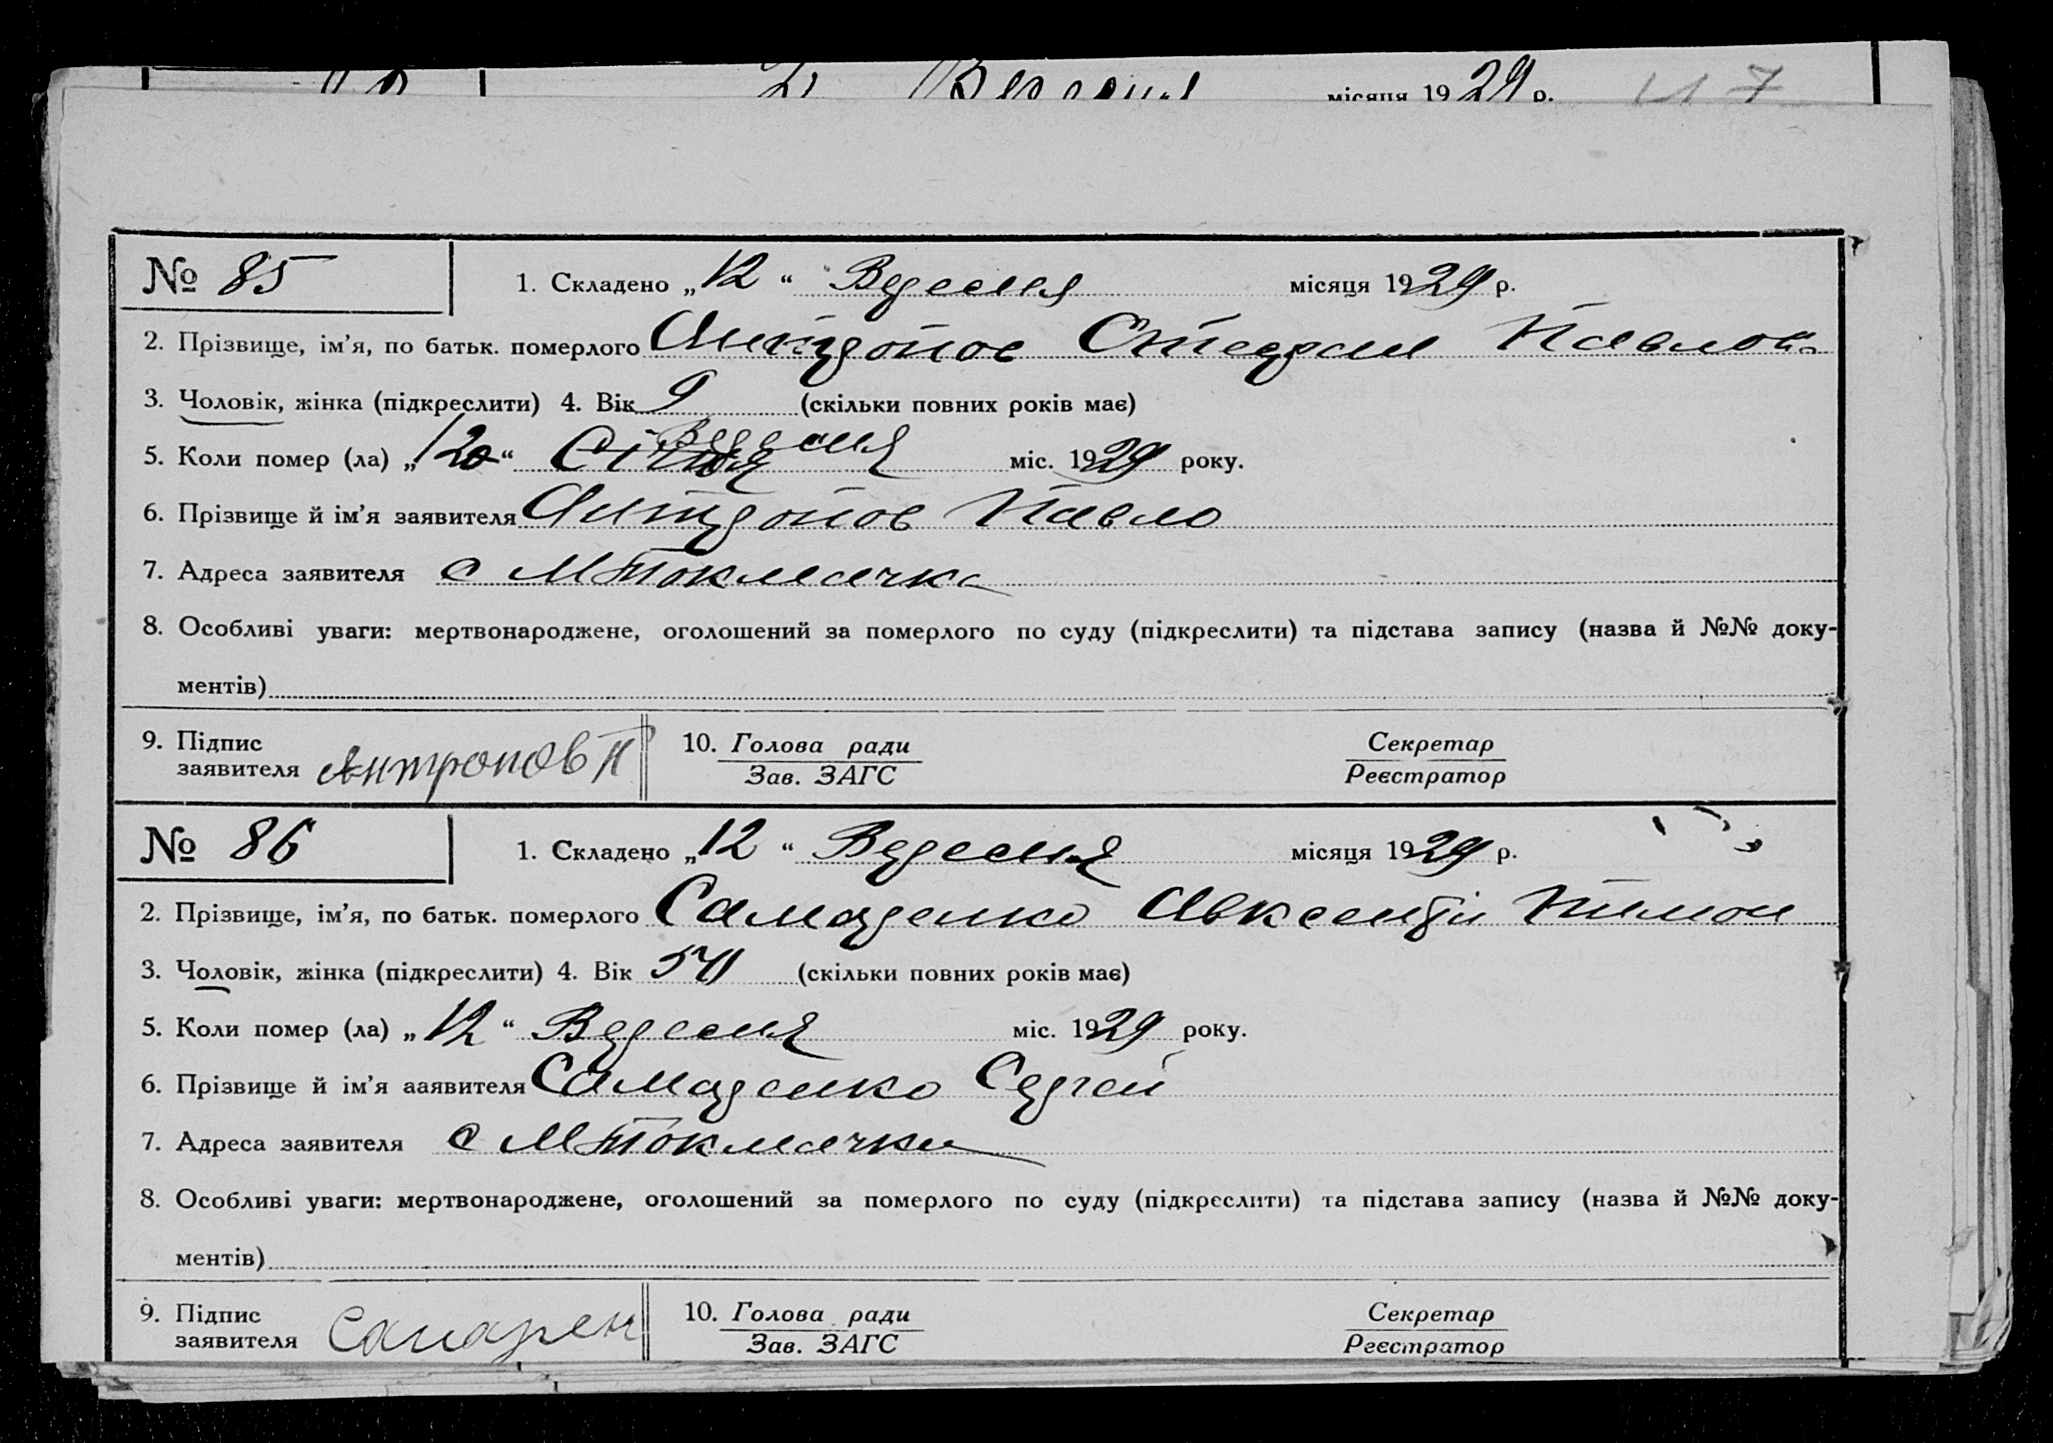 Вересня місяця 1929 р. 117
№ 85 1. Складено „12“ Вересня місяця 1929 р.
2. Прізвище, ім'я, по батьк. померлого Антропов Стефан Павлов
3. Чоловік, жінка (підкреслити) 4. Вік 9 (скільки повних років має)
Вересня
5. Коли помер (ла) „12“ Січня міс. 1929 року.
6. Прізвище й ім'я заявителя Антропов Павло
7. Адреса заявителя с МТокмачка
8. Особливі уваги: мертвонароджене, оголошений за померлого по суду (підкреслити) та підстава запису (назва й №№ доку-
ментів)
9. Підпис заявителя Антропов П 10. Голова ради Секретар
Зав. ЗАГС Реєстратор
№ 86 1. Складено „12“ Вересня місяця 1929 р.
2. Прізвище, ім'я, по батьк. померлого Самаренко Авксентій Тимон
3. Чоловік, жінка (підкреслити) 4. Вік (скільки повних років має)
5. Коли помер (ла) „12“ Вересня міс. 1929 року.
6. Прізвище й ім'я ааявителя Самаренко Сергей
7. Адреса заявителя с МТокмачка
8. Особливі уваги: мертвонароджене, оголошений за померлого по суду (підкреслити) та підстава запису (назва й №№ доку-
ментів)
9. Підпис заявителя 10. Голова ради Секретар
Зав. ЗАГС Реєстратор